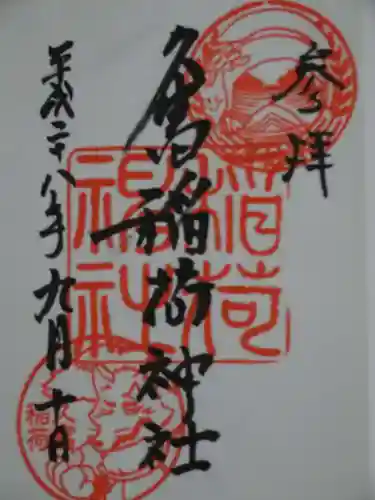 参拝
稲荷神社
平成二十八年九月十日
稲荷
稲荷